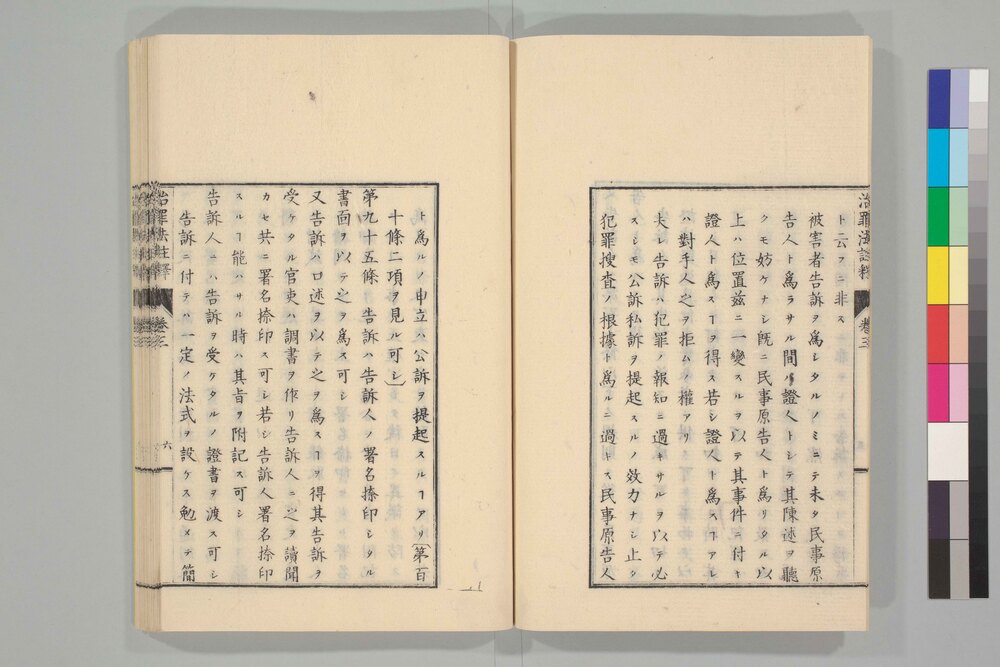 治罪法註釋 卷三
ト云フニ非ス
被害者告訴ヲ爲シタルノミニテ未タ民事原
告人ト爲ラサル間ハ證人トシテ其陳述ヲ聽
クモ妨ケナシ旣ニ民事原告人ト爲リタル以
上ハ位置玆ニ一變スルヲ以テ其事件ニ付キ
證人ト爲スヿヲ得ス若シ證人ト爲スヿアレ
ハ對手人之ヲ拒ムノ權アリ
夫レ告訴ハ犯罪ノ報知ニ過キサルヲ以テ必
スシモ公訴私訴ヲ提起スルノ效力ナシ止タ
犯罪搜査ノ根據ト爲ルニ過キス民事原告人
ト爲ルノ申立ハ公訴ヲ提起スルヿアリ〔第百
十條二項ヲ見ル可シ〕
第九十五條 告訴ハ告訴人ノ署名捺印シタル
書面ヲ以テ之ヲ爲ス可シ
又告訴ハ口述ヲ以テ之ヲ爲スヿヲ得其告訴ヲ
受ケタル官吏ハ調書ヲ作リ告訴人ニ之ヲ讀聞
カセ共ニ署名捺印ス可シ若シ告訴人署名捺印
スルヿ能ハサル時ハ其旨ヲ附記ス可シ
告訴人ニハ告訴ヲ受ケタルノ證書ヲ渡ス可シ
告訴ニ付テハ一定ノ法式ヲ設ケス勉メテ簡
治罪法註釋 卷三 六